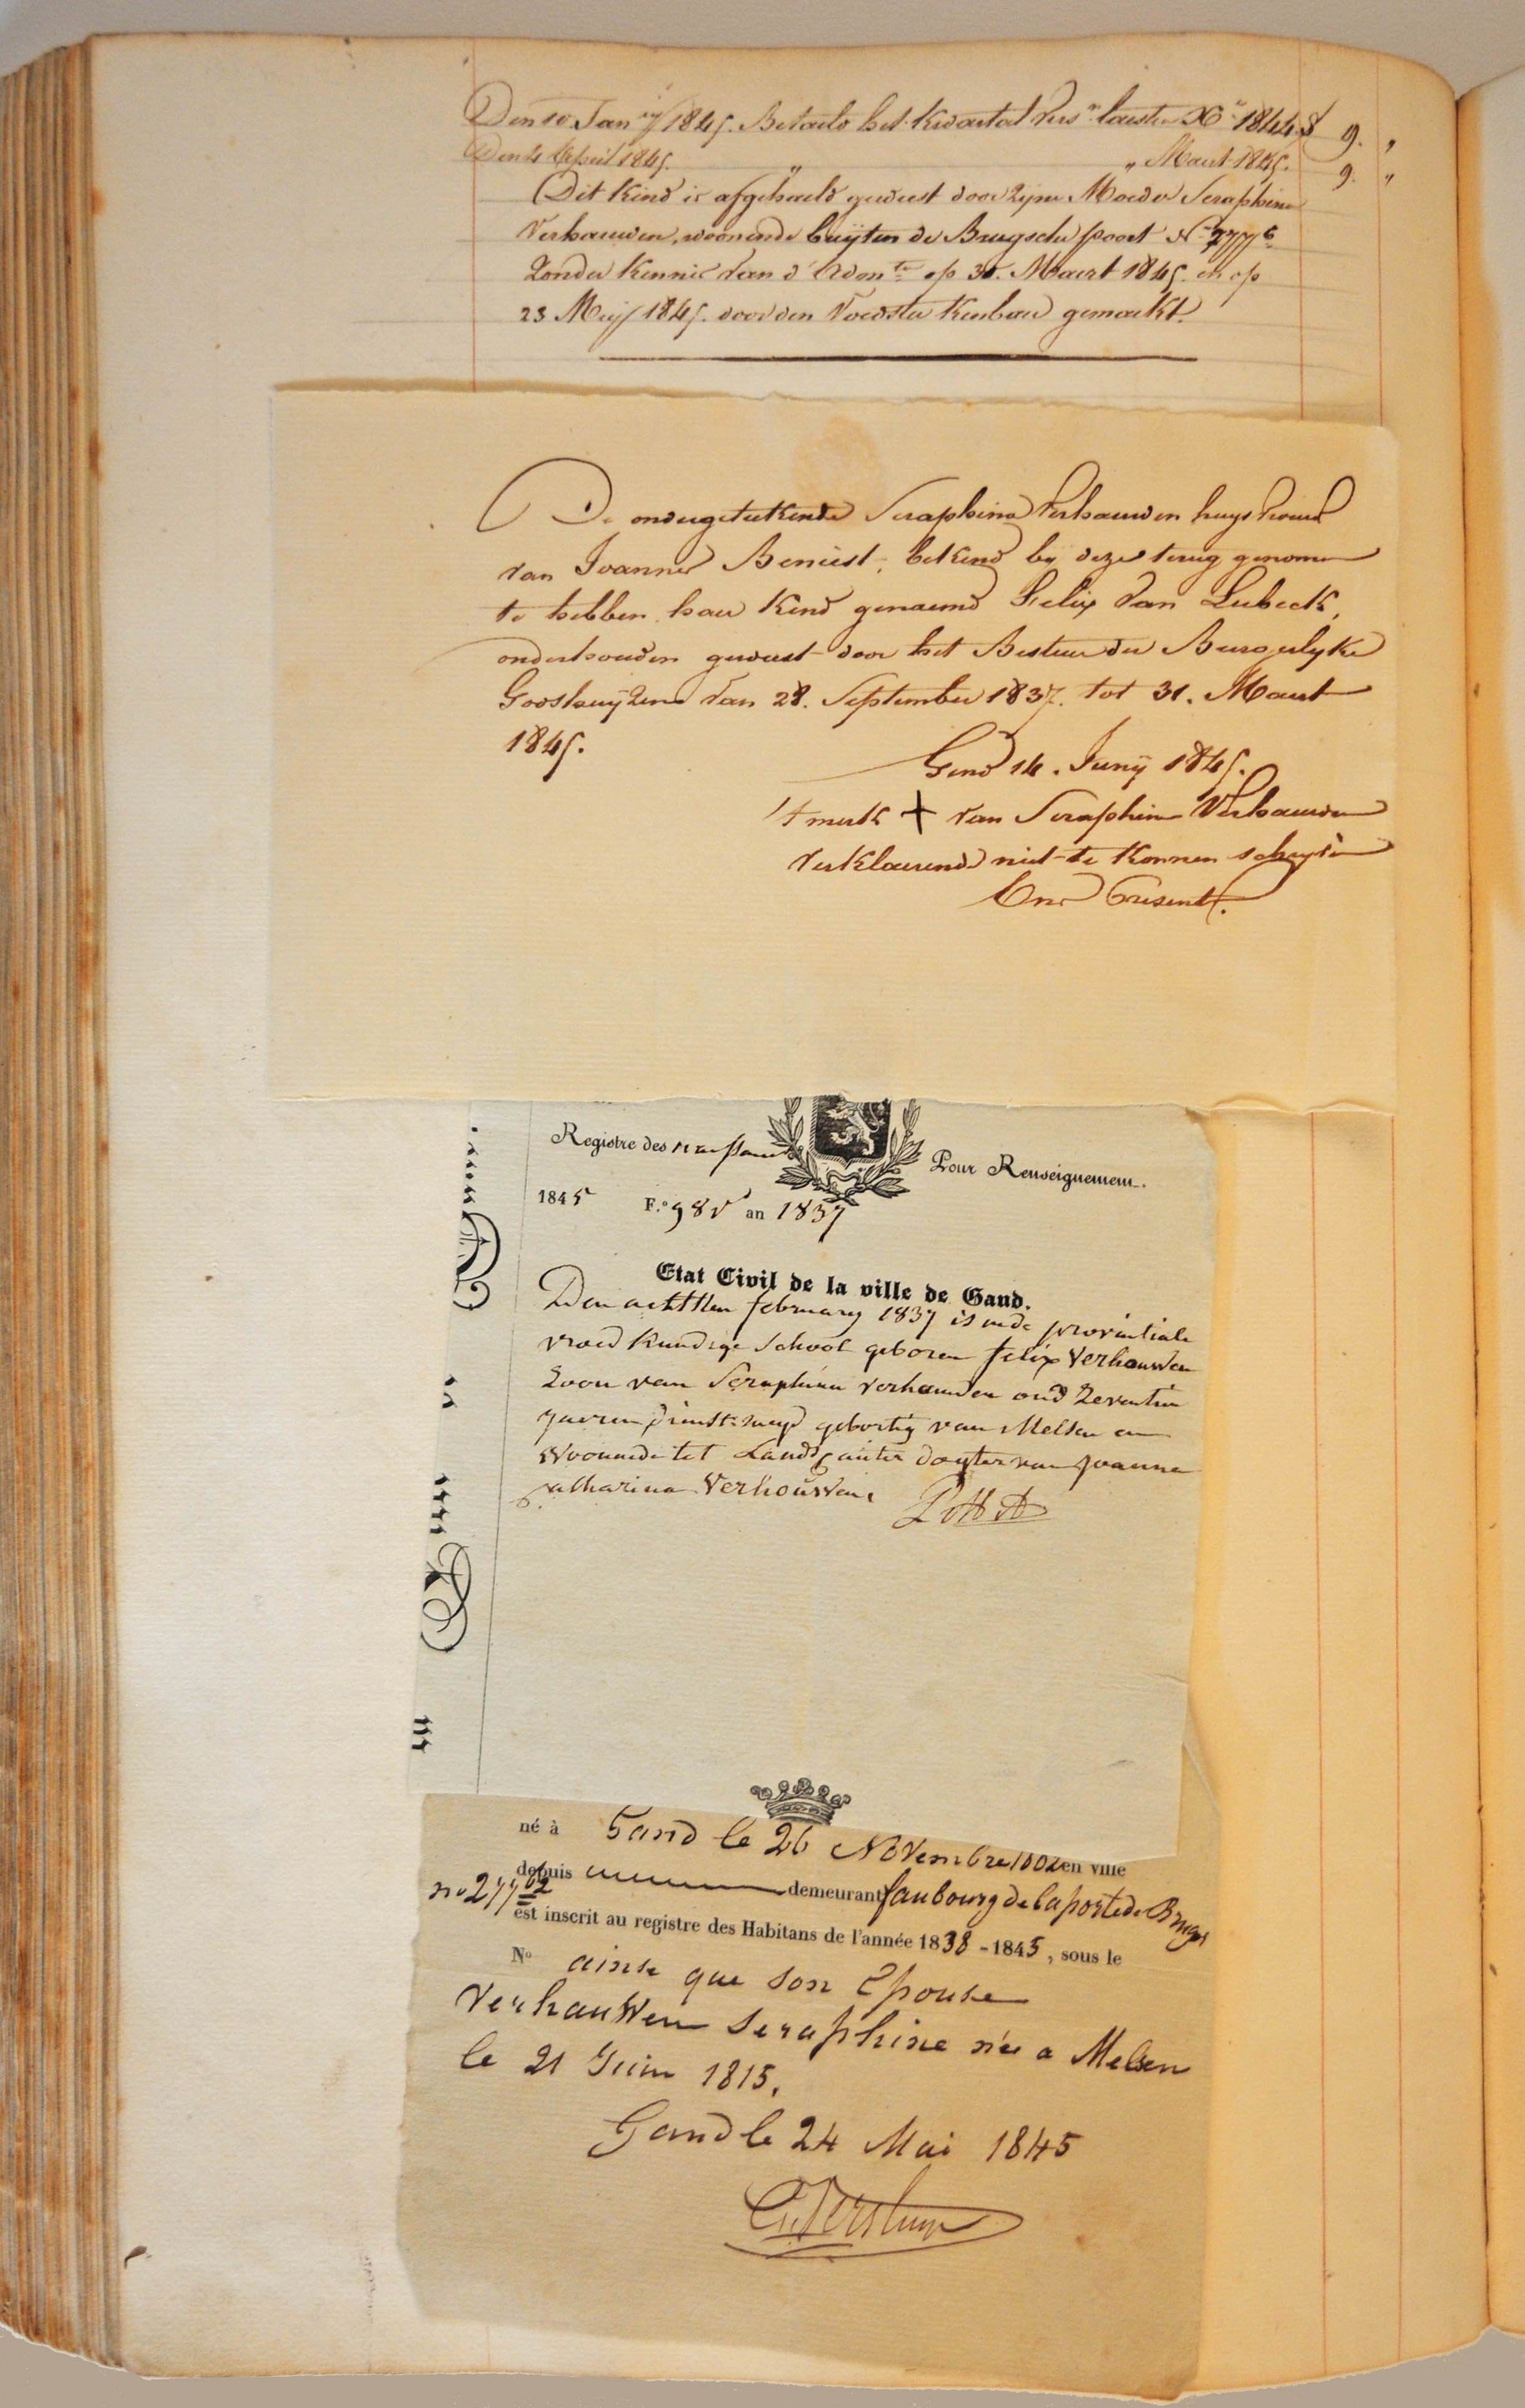 Den 10 Jan.ry 1845. Betaeld het kwartal vers.n laesten X.r 1844 f 9. "
Den 4 April 1845. " " Maert 1845. 9. "
Dit kind is afgehaeld geweest door zijne Moeder Seraphine
Verhauwen, woonende buijten de Brugsche poort N.o 277
zonder kennis van d' op 30. Maert 1845. en op
23 Meij 1845. door den Voedster kenbaer gemaekt.
De ondergeteekende Seraphina Verhauwen huysvrouw
van Joannes Beniest, bekend by deze terug genomen
te hebben haer kind genaemd Felix Van Lubeck,
onderhouden geweest door het Bestuer der Burgerlyke
Godshuyzen van 28. September 1837. tot 31. Maert
1845.
Gend 14. Junij 1845.
't merk + van Seraphine Verhauwen
verklaerende niet te konnen schryven
Présent.
Registre des naissances
Pour Renseignement.
1845 F.o 98 v an 1837
Etat Civil de la ville de Gand.
Den achtsten february 1837 is in de provintiale
vroedkundige school geboren felix Verhauwen
zoon van Seraphina verhauwen oud zeventien
jaeren dienstmeyd geboortig van Melsen en
woonende tot dogter van Joanna
catharina Verhouwen
né à Gand le 26 Novembre 1802 en ville
depuis demeurant faubourg de la porte de Bruges
no 277
est inscrit au registre des Habitans de l'année 1838 - 1845, sous le
No ainse que son Epouse
Verhauwen Seraphine née a Melsen
le 21 Juin 1815.
Gand le 24 Mai 1845